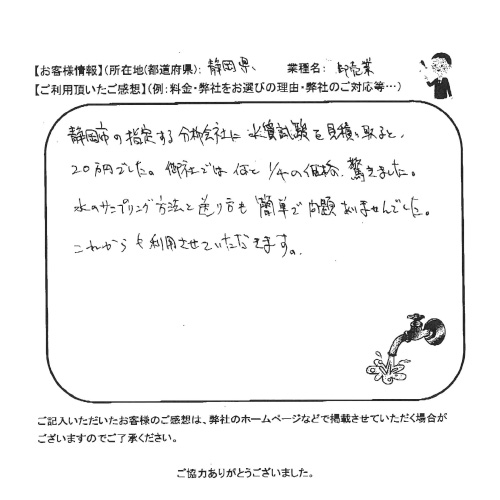 【お客様情報】(所在地(都道府県): 静岡県、 業種名: 卸売業
【ご利用頂いたご感想】(例:料金・弊社をお選びの理由・弊社のご対応等…)
静岡市の指定する分析会社に水質試験を見積り取ると、
20万円でした。御社では何と1/4の価格、驚きました。
水のサンプリング方法と送り方も簡単で問題ありませんでした。
これからも利用させていただきます。
ご記入いただいたお客様のご感想は、弊社のホームページなどで掲載させていただく場合が
ございますのでご了承ください。
ご協力ありがとうございました。